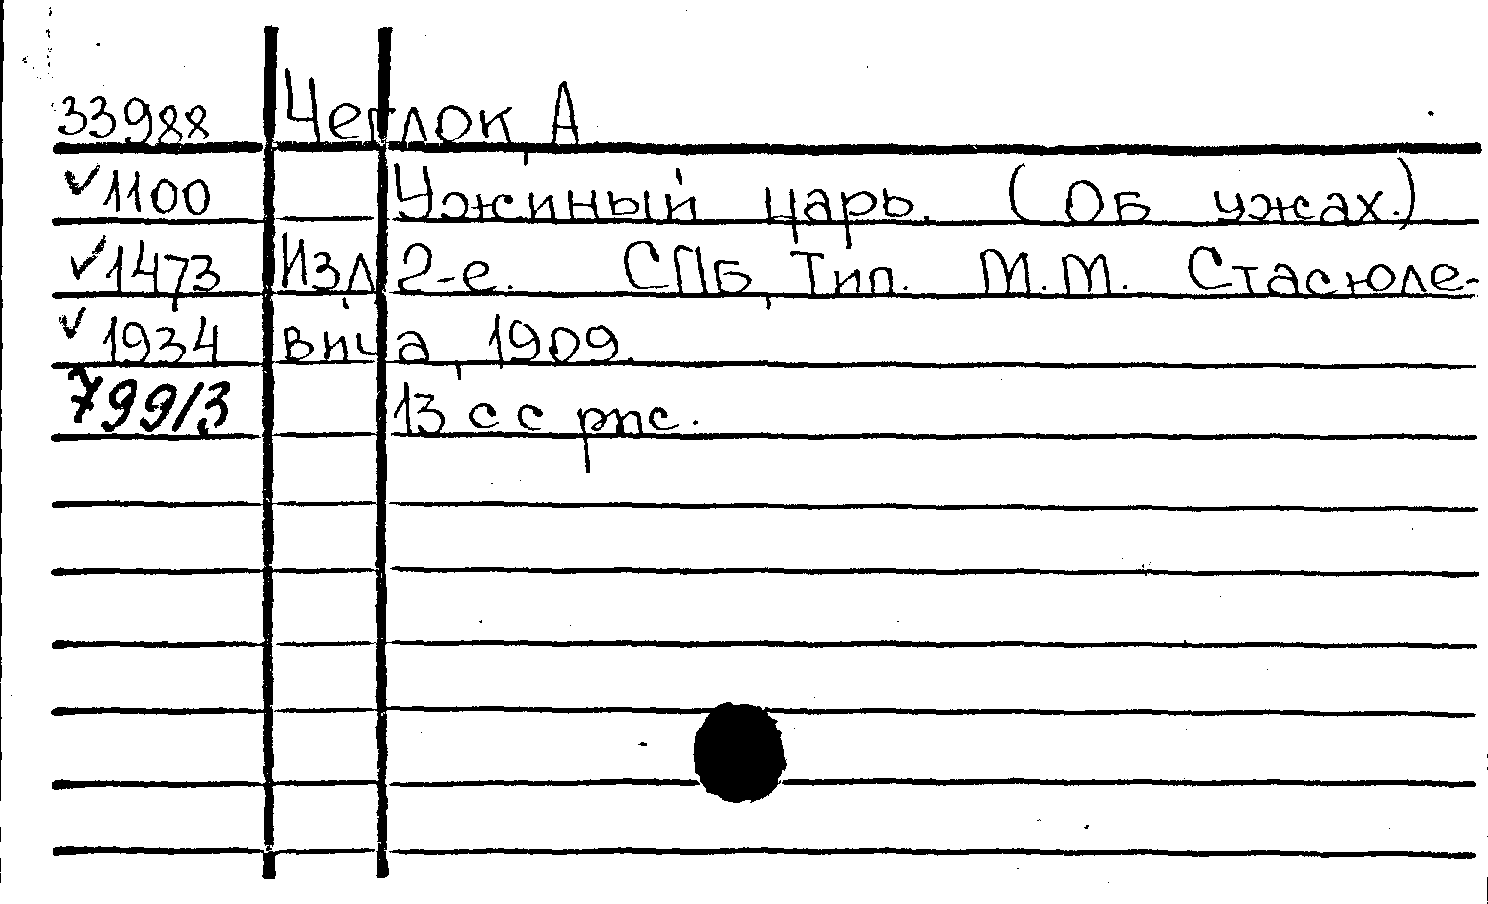 33988 Чеглок, А
✓1100 Ужиный царь. (Об ужах.)
✓1473 Изд 2-е. СПБ, Тип. М.М. Стасюле-
✓1934 вича, 1909.
799/3 13 с с рис.